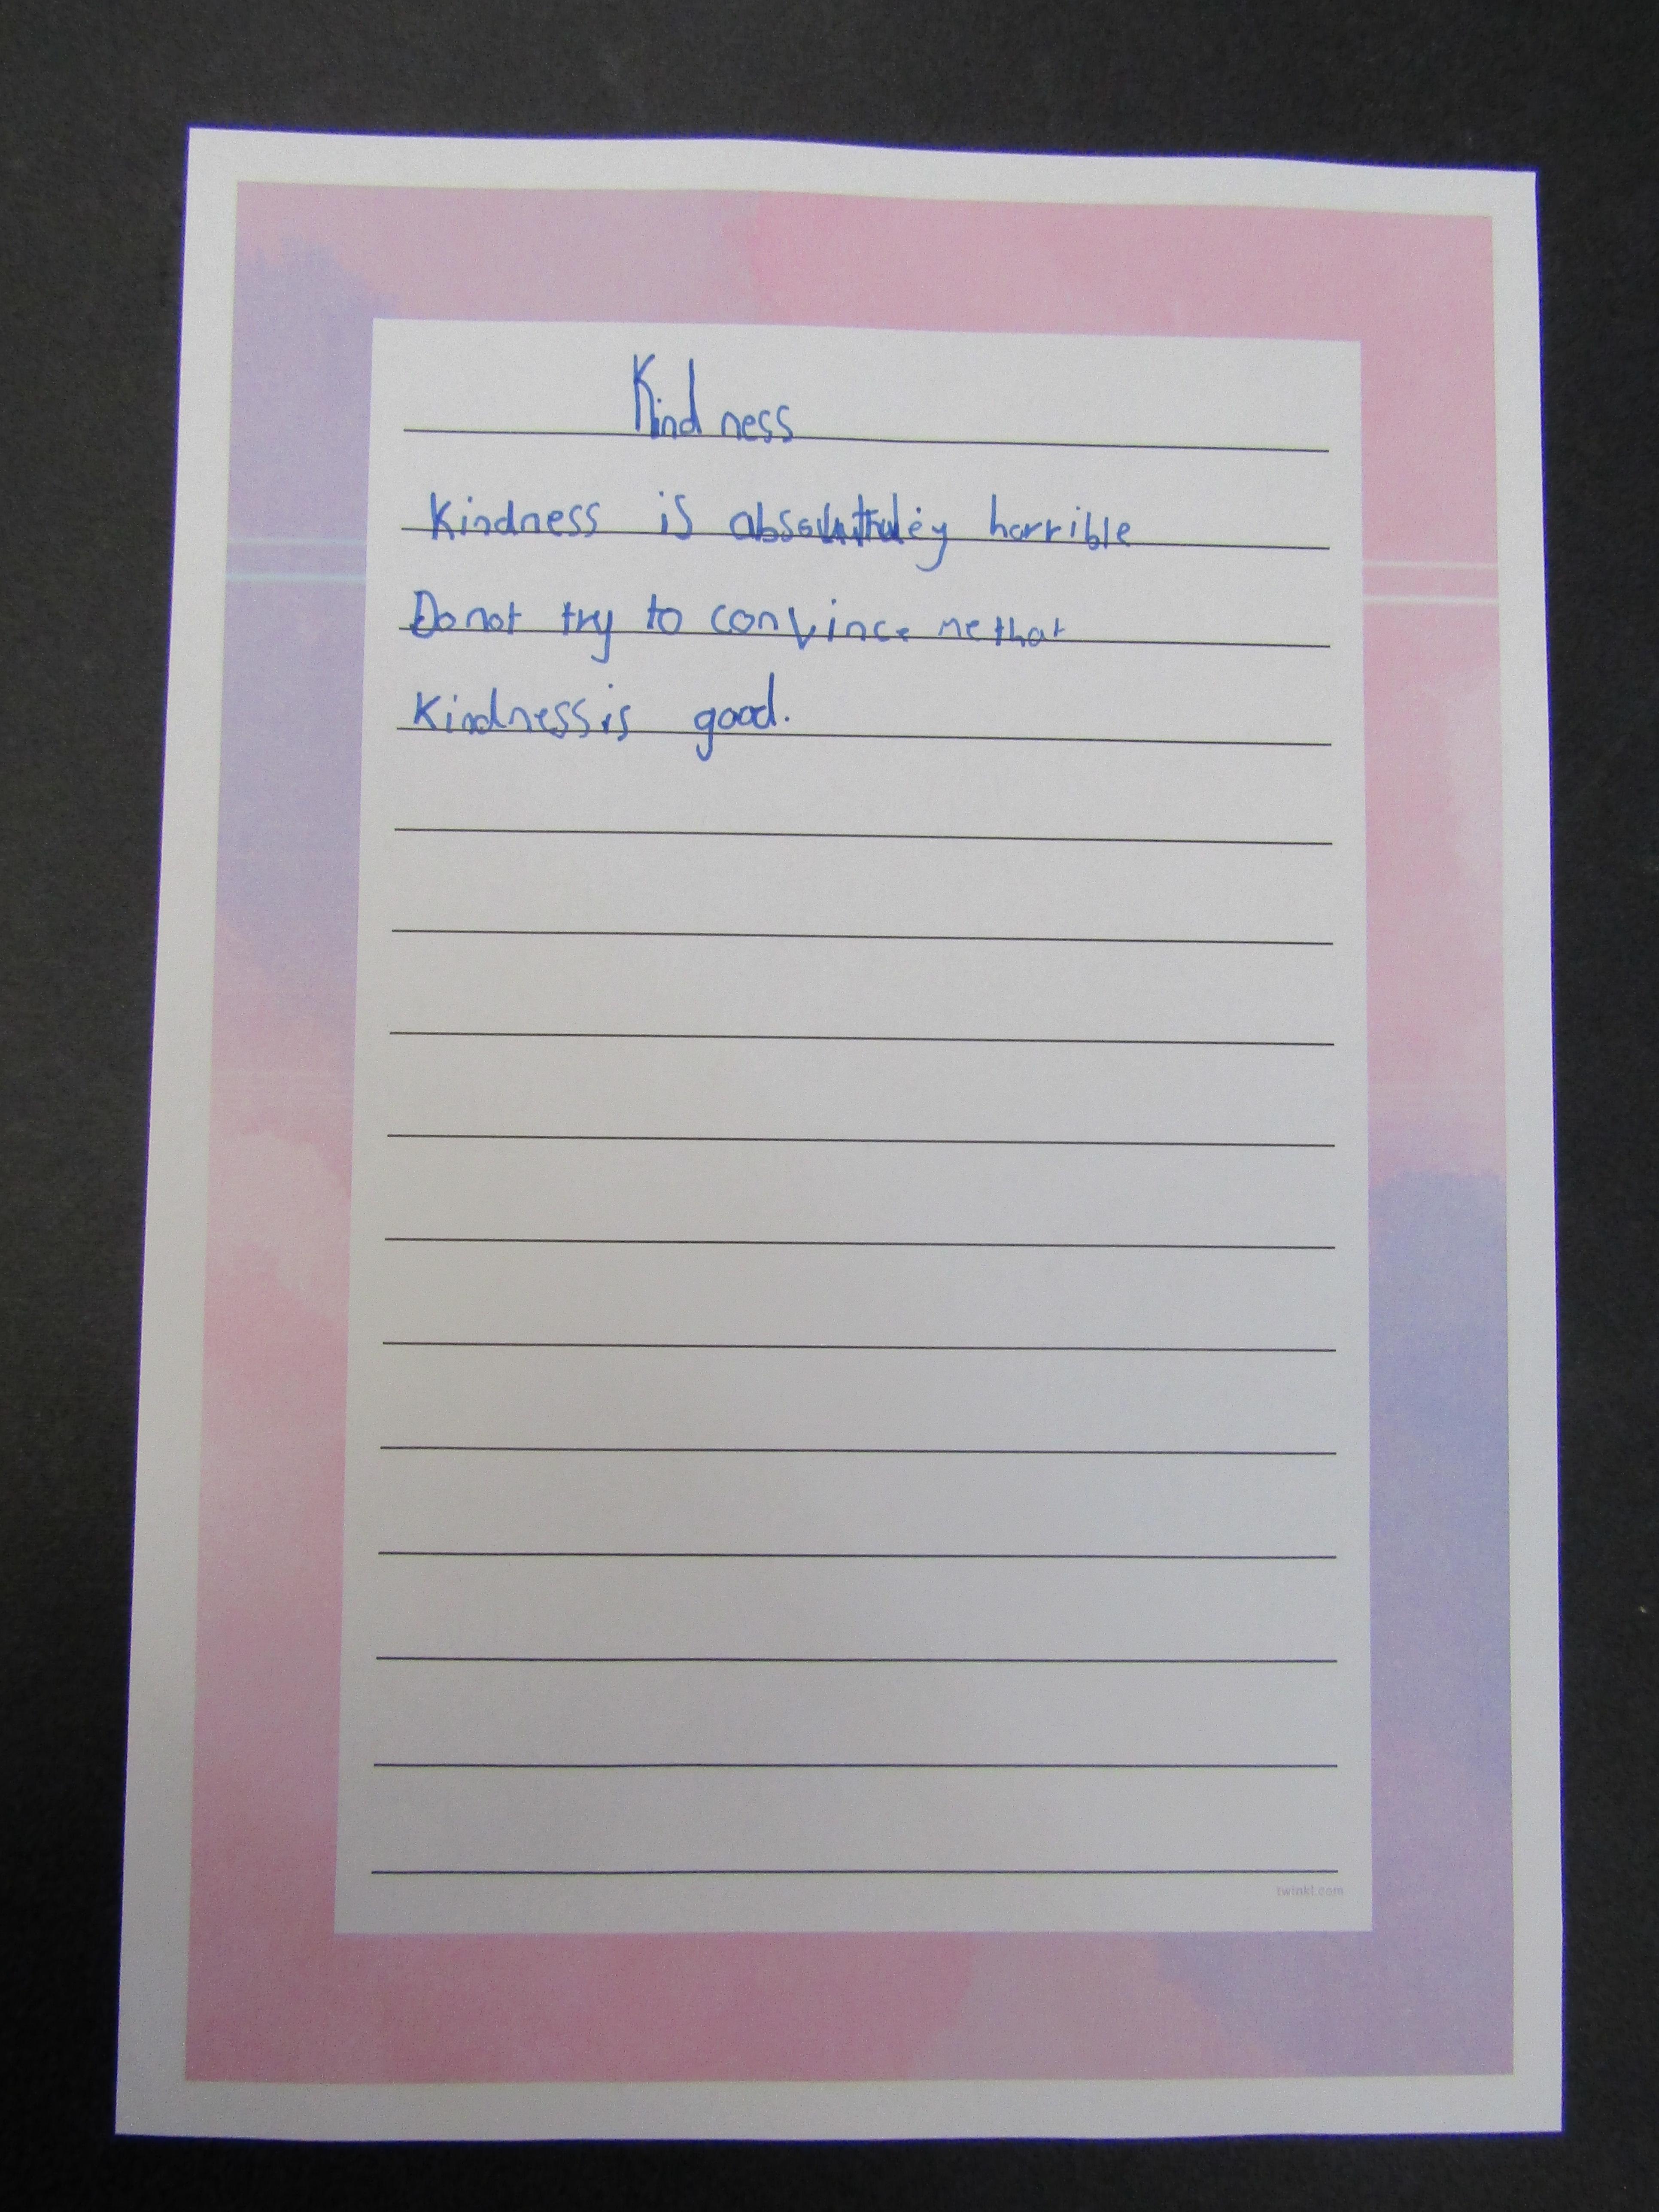 Kindness
Kindness is horrible
Do not try to convince me that
Kindness is good.
twinkl.com